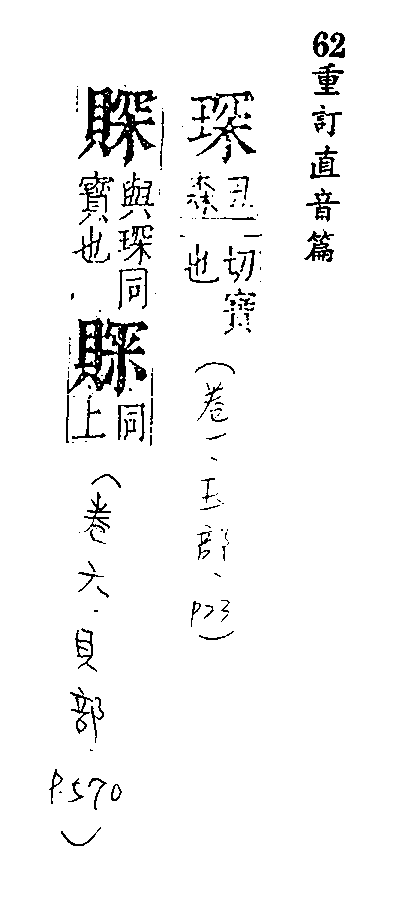 62重訂直音篇
琛丑森切寶也（卷一、玉部、P23）
賝與琛同寶也 同上（卷六．貝部．P.570）